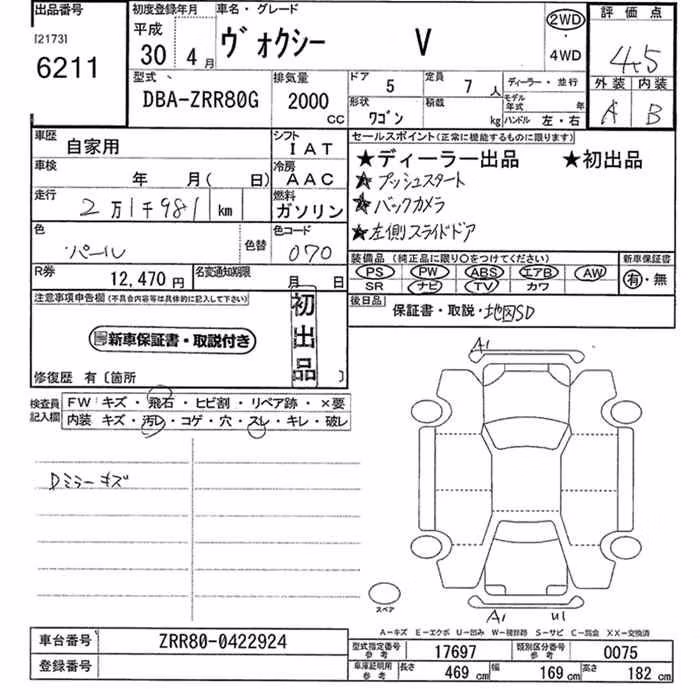 出品番号 初度登録年月 車名・グレード 評価点
[2173] 平成
6211 30年 4月 ヴォクシー V 2WD・4WD 4.5
型式 排気量 ドア 5 定員 7人 ディーラー・並行 外装 内装
DBA-ZRR80G 2000cc 形状 ワゴン 積載 kg モデル年式 年 ハンドル 左・右 A B
車歴 自家用 シフト IAT セールスポイント(正常に機能するものに限ります)
車検 年 月( 日) 冷房 AAC ★ディーラー出品 ★初出品
走行 2万1千981 km 燃料 ガソリン ★プッシュスタート
★バックカメラ
★左側スライドドア
色 パール 色替 色コード 070
装備品(純正品に限り○をつけてください) 新車保証書
PS PW ABS エアB AW 有・無
SR ナビ TV カワ
R券 12,470円 名変通知期限 月 日
後日品 保証書・取説・地図SD
注意事項申告欄(不具合内容等は具体的に記入して下さい) 初出品
新車保証書・取説付き
修復歴 有〔箇所 〕
検査員記入欄 FW キズ・飛石・ヒビ割・リペア跡・×要
内装 キズ・汚レ・コゲ・穴・スレ・キレ・破レ
A1
Dミラーキズ
スペア
A1 U1
A－キズ E－エクボ U－凹み W－補修跡 S－サビ C－腐食 XX－交換済
車台番号 ZRR80-0422924 型式指定番号 参考 17697 類別区分番号 参考 0075
登録番号 車庫証明用 参考 長さ 469 cm 幅 169 cm 高さ 182 cm